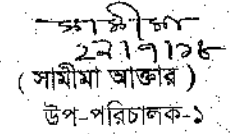 শামীমা
২২।৭।১৮
( সামীমা আক্তার )
উপ-পরিচালক-১